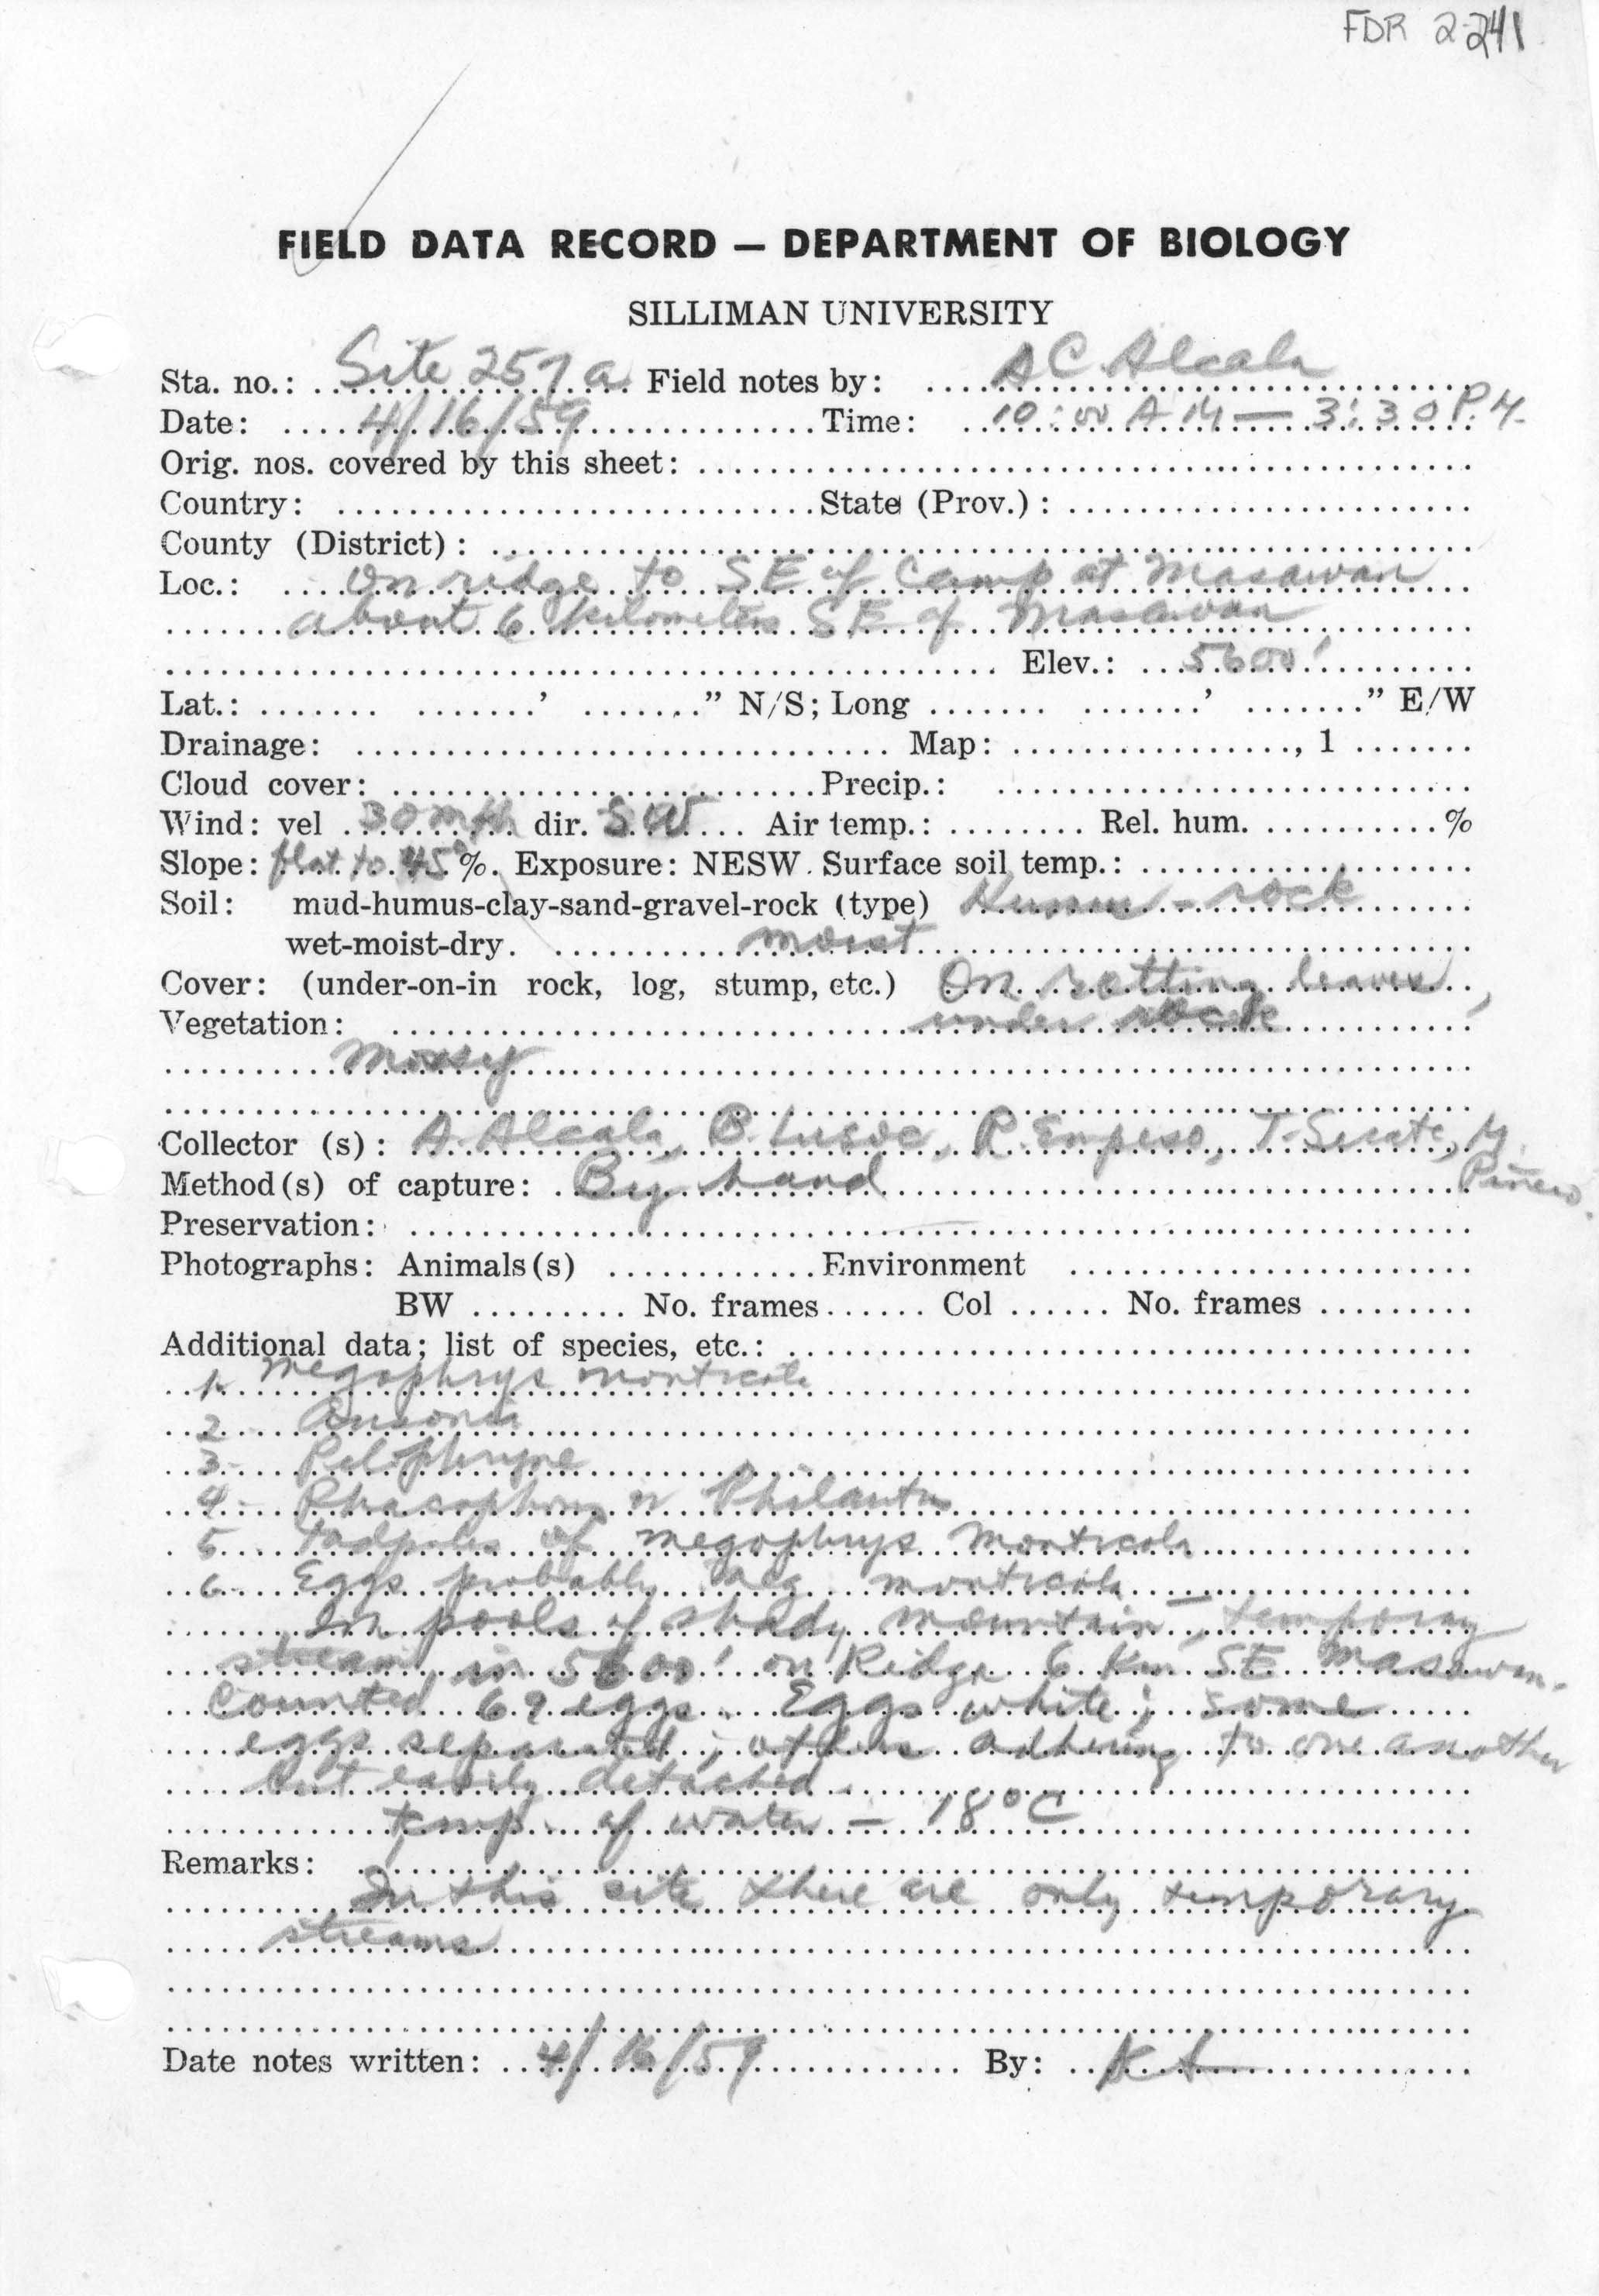 FDR 2-241
FIELD DATA RECORD — DEPARTMENT OF BIOLOGY
SILLIMAN UNIVERSITY
Sta. no.: Site 257a Field notes by: A C Alcala
Date: 4/16/59 Time: 10:00 AM — 3:30 P.M.
Orig. nos. covered by this sheet:
Country: State (Prov.):
County (District):
Loc.: On ridge to SE of Camp at Masawan
about 6 kilometers SE of Masawan
Elev.: 5600'
Lat.: ' " N/S; Long ' " E/W
Drainage: Map: , 1
Cloud cover: Precip.:
Wind: vel 30 mph dir. SW Air temp.: Rel. hum. %
Slope: flat to 45° %. Exposure: NESW. Surface soil temp.:
Soil: mud-humus-clay-sand-gravel-rock (type) Humus - rock
wet-moist-dry. moist
Cover: (under-on-in rock, log, stump, etc.) On rotting leaves,
Vegetation: under rock
mossy
Collector (s): A. Alcala, B. Lusoc, R. Empeso, T. , M.
Method(s) of capture: By hand Pinero.
Preservation:
Photographs: Animals(s) Environment
BW No. frames Col No. frames
Additional data; list of species, etc.:
1. Megophrys monticola
2. Ansonia
3. Pelophryne
4. Rhacophorus or Philautus
5. Tadpoles of Megophrys monticola
6. Eggs probably Meg. monticola —
In pools of shady mountain, temporary
stream in 5600' on Ridge 6 km SE Masawan.
Counted 69 eggs. Eggs white; some
eggs separated; others adhering to one another
but easily detached.
temp. of water — 18°C
Remarks:
In this site there are only temporary
streams
Date notes written: 4/16/59 By: